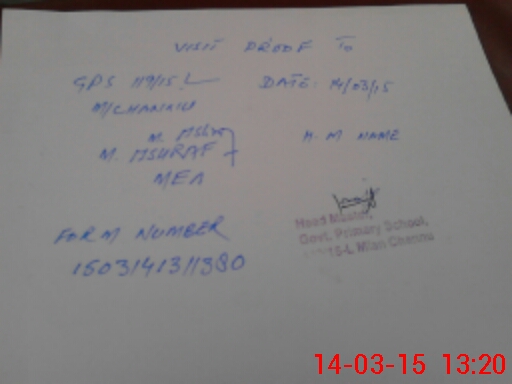 VISIT PROOF TO
GPS 119/15 L DATE: 14/03/15
M/CHANNU
M. ASHRAF H. M NAME
M. ASHRAF
MEA
FORM NUMBER
1503141311380
Head Master,
Govt. Primary School,
15-L Mian Channu
14-03-15 13:20